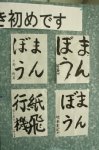 き初めです
まん
ぼう
まん
ぼう
紙飛
行機
まん
ぼう